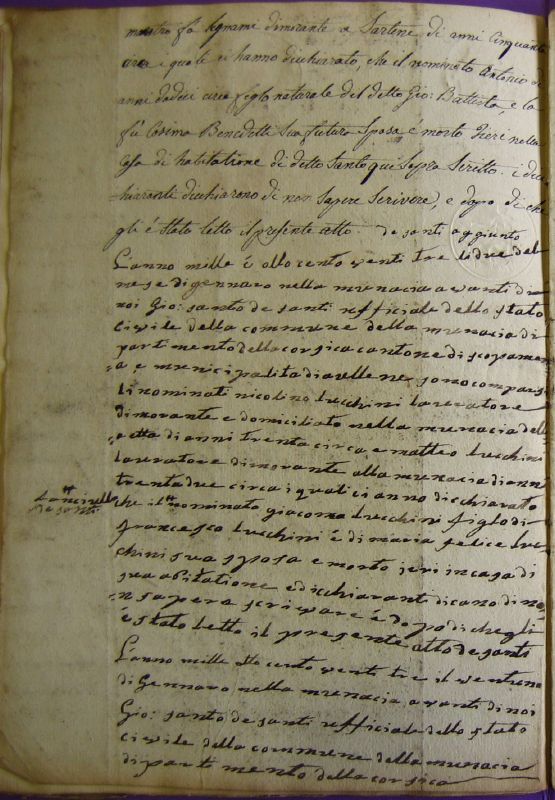 mastro fa legnami dimorante a Sartene di anni Cinquanta
circa quali ci hanno dicchiarato, che il nominato Antonio di
anni dodeci circa figlo naturale del detto Gio: Battista, e la
fù Cosima Benedetti Sua futura Sposa è morto Jeri nella
Casa di habitatione di detto Santo qui Sopra Scritto. i dic
hiaranti dicchiarono di non Sapere Scrivere, e dopo di che
gli è Stato letto il presente atto. de santi aggiunto
L'anno mille è otto cento venti tre li due del
mese di gennaro nella munacia avanti di
noi Gio: santo de santi ufficiale dello stato
Civile della commune della munacia di
parti mento della corsica cantone di scopamen
a e municipalita di avellene sono comparsi
li nominati nicolino lucchini lavoratore
dimorante e domiciliato nella munacia dell
etta di anni trenta circa e matteo lucchini
lavoratore dimorante alla munacia di anni
trenta due circa i quali ci anno dicchiaratto
che il nominato giacomo lucchini figlo di
francesco lucchini è di maria felice luc
chini sua sposa e morto jeri in casa di
sua abitatione e dicchiaranti dicano di no
n sapera scrivare è dopo di che gli
è stato letto il presente atto de santi
de santi
L'anno mille otto cento venti tre il ventuno
di Gennaro nella munacia avanti di noi
Gio: santo de santi ufficiale dello stato
civile della commune della munacia
diparti mento della corsica